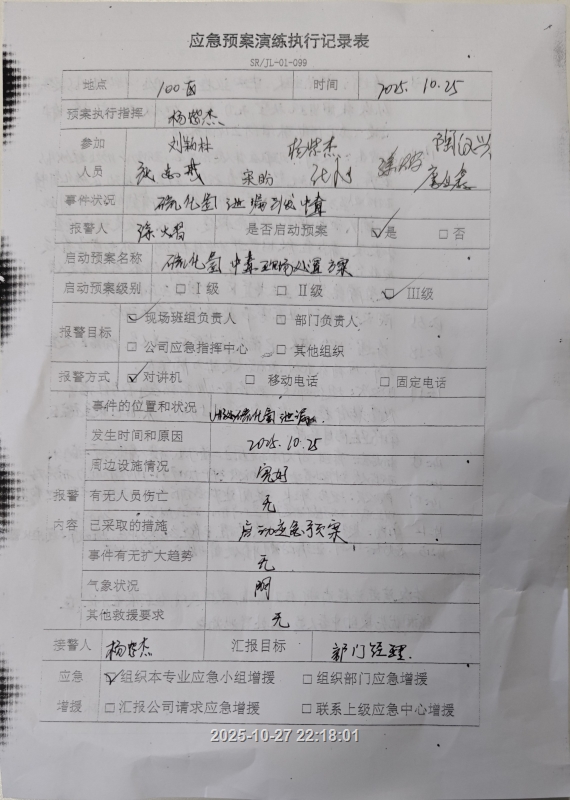 应急预案演练执行记录表
SR/JL-01-099
地点 100 时间 2025. 10. 25
预案执行指挥 杨
参加
人员
事件状况 硫化氢泄漏 中毒
报警人 是否启动预案 ☑是 □否
启动预案名称 硫化氢中毒现场处置方案
启动预案级别 □Ⅰ级 □Ⅱ级 ☑Ⅲ级
报警目标 ☑现场班组负责人 □部门负责人
□公司应急指挥中心 □其他组织
报警方式 ☑对讲机 □移动电话 □固定电话
报警内容
事件的位置和状况 硫化氢泄漏
发生时间和原因 2025. 10. 25
周边设施情况 完好
有无人员伤亡 无
已采取的措施 启动应急预案
事件有无扩大趋势 无
气象状况
其他救援要求 无
接警人 杨 汇报目标 部门经理.
应急增援 ☑组织本专业应急小组增援 □组织部门应急增援
□汇报公司请求应急增援 □联系上级应急中心增援
2025-10-27 22:18:01